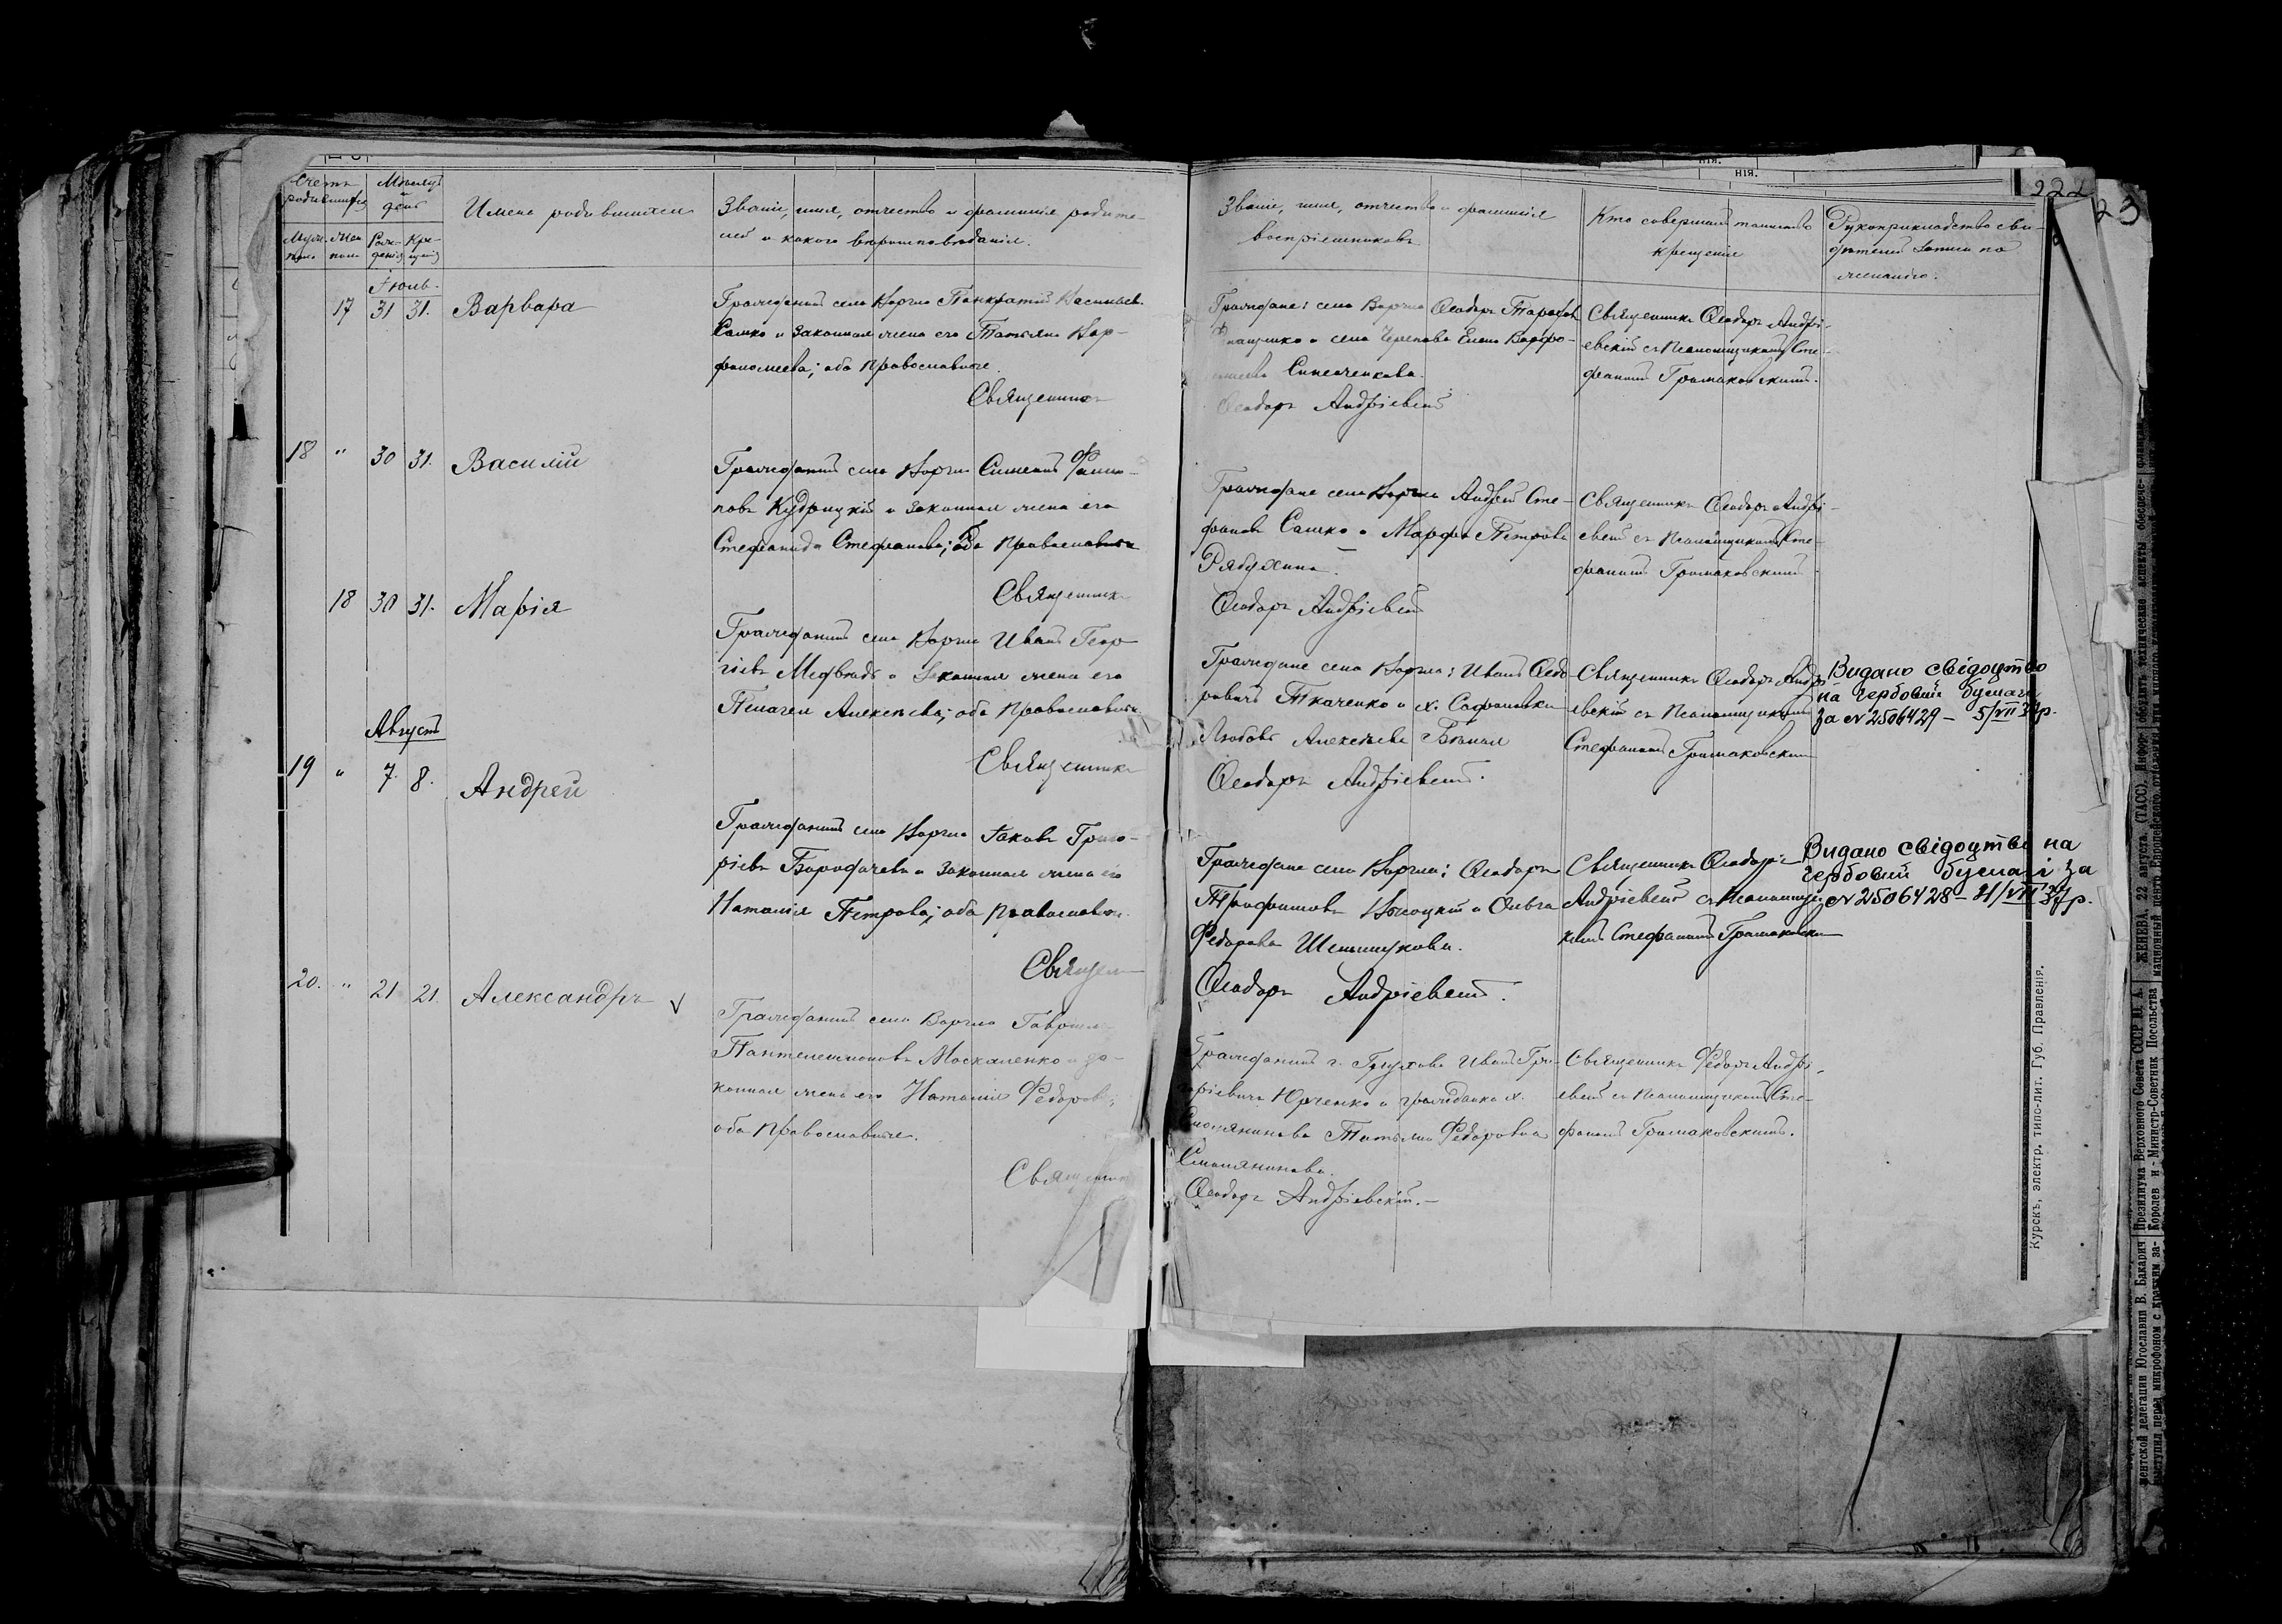 Счетъ родившихся
Мѣсяцъ и день
Имена родившихся
Званіе, имя, отчество и фамилія родите-
лей и какого вѣроисповѣданія.
Муж. пола
Жен. пола
Рож-
денія
Кре-
щенія
Іюль.
17 31 31. Варвара
Гражданинъ села Воргла Панкратій Васильев.
Сашко и законная жена его Татьяна Вар-
фоломеева; оба православные.
Священникъ
18 " 30 31. Василій
Гражданинъ села Воргла Симеонъ Филип-
повъ Кудрицкій и законная жена его
Стефанида Стефанова; оба православные
Священникъ
18 30 31. Марія
Гражданинъ села Воргла Иванъ Геор-
гіевъ Медвѣдь и законная жена его
Пелагея Алексѣева; оба православные
Священникъ
Августъ
19 " 7. 8. Андрей
Гражданинъ села Воргла Іаковъ Григо-
ріевъ и законная жена его
Наталія Петрова; оба православные.
Священ
20. " 21 21. Александръ √
Гражданинъ села Воргла Гавріилъ
Пантелеимоновъ Москаленко и за-
конная жена его Наталія Федорова;
оба православные.
Священникъ
нія.
нія.
222
23
Званіе, имя, отчество и фамилія
воспріемниковъ
Кто совершалъ таинство
крещенія
Рукоприкладство сви-
дѣтелей записи по
желанію.
Граждане: села Воргла Ѳеодоръ Тарасовъ
и села Черепова Елена Варфо-
ломеева
Ѳеодоръ Андріевскій
Священникъ Ѳеодоръ Андрі-
евскій съ псаломщикомъ Сте-
фаномъ Грамаковскимъ.
Граждане села Воргла Андрей Сте-
фановъ Сашко и Марфа Петрова
Рябухина.
Ѳеодоръ Андріевскій
Священникъ Ѳеодоръ Андрі-
евскій съ псаломщикомъ Сте-
фаномъ Грамаковскимъ
Граждане села Воргла: Иванъ Ѳедо-
ровичъ Ткаченко и х. Сафоновки
Любовь Алексѣева
Ѳеодоръ Андріевскій.
Священникъ Ѳеодоръ Андрі-
евскій съ псаломщикомъ
Стефаномъ Грамаковскимъ
Видано свідоцтво
на гербовій бумаги
за № 2506429 – 5/VII 37р.
Граждане села Воргла: Ѳеодоръ
Трофимовъ и Ольга
Федорова
Ѳеодоръ Андріевскій.
Священникъ Ѳеодоръ
Андріевскій съ псаломщи-
комъ Стефаномъ Грамаковскимъ
Видано свідоцтво на
гербовий бумагі за
№ 2506428 – 4/VII 37р.
Гражданинъ г. Глухова Иванъ Гри-
горіевичъ Юрченко и гражданка х.
Смолянинова Татьяна Федоровна
Смолянинова.
Ѳеодоръ Андріевскій.–
Священникъ Ѳедоръ Андрі-
евскій съ псаломщикомъ Сте-
фаномъ Грамаковскимъ.
Курскъ, электр. типо-лит. Губ. Правленія.
ментской делегации Югославии В. Бакарич
Президиума Верховного Совета СССР
ЖЕНЕВА, 22 августа. (ТАСС).
выступил перед микрофоном с кратким за-
Королев и Министр-Советник Посольства